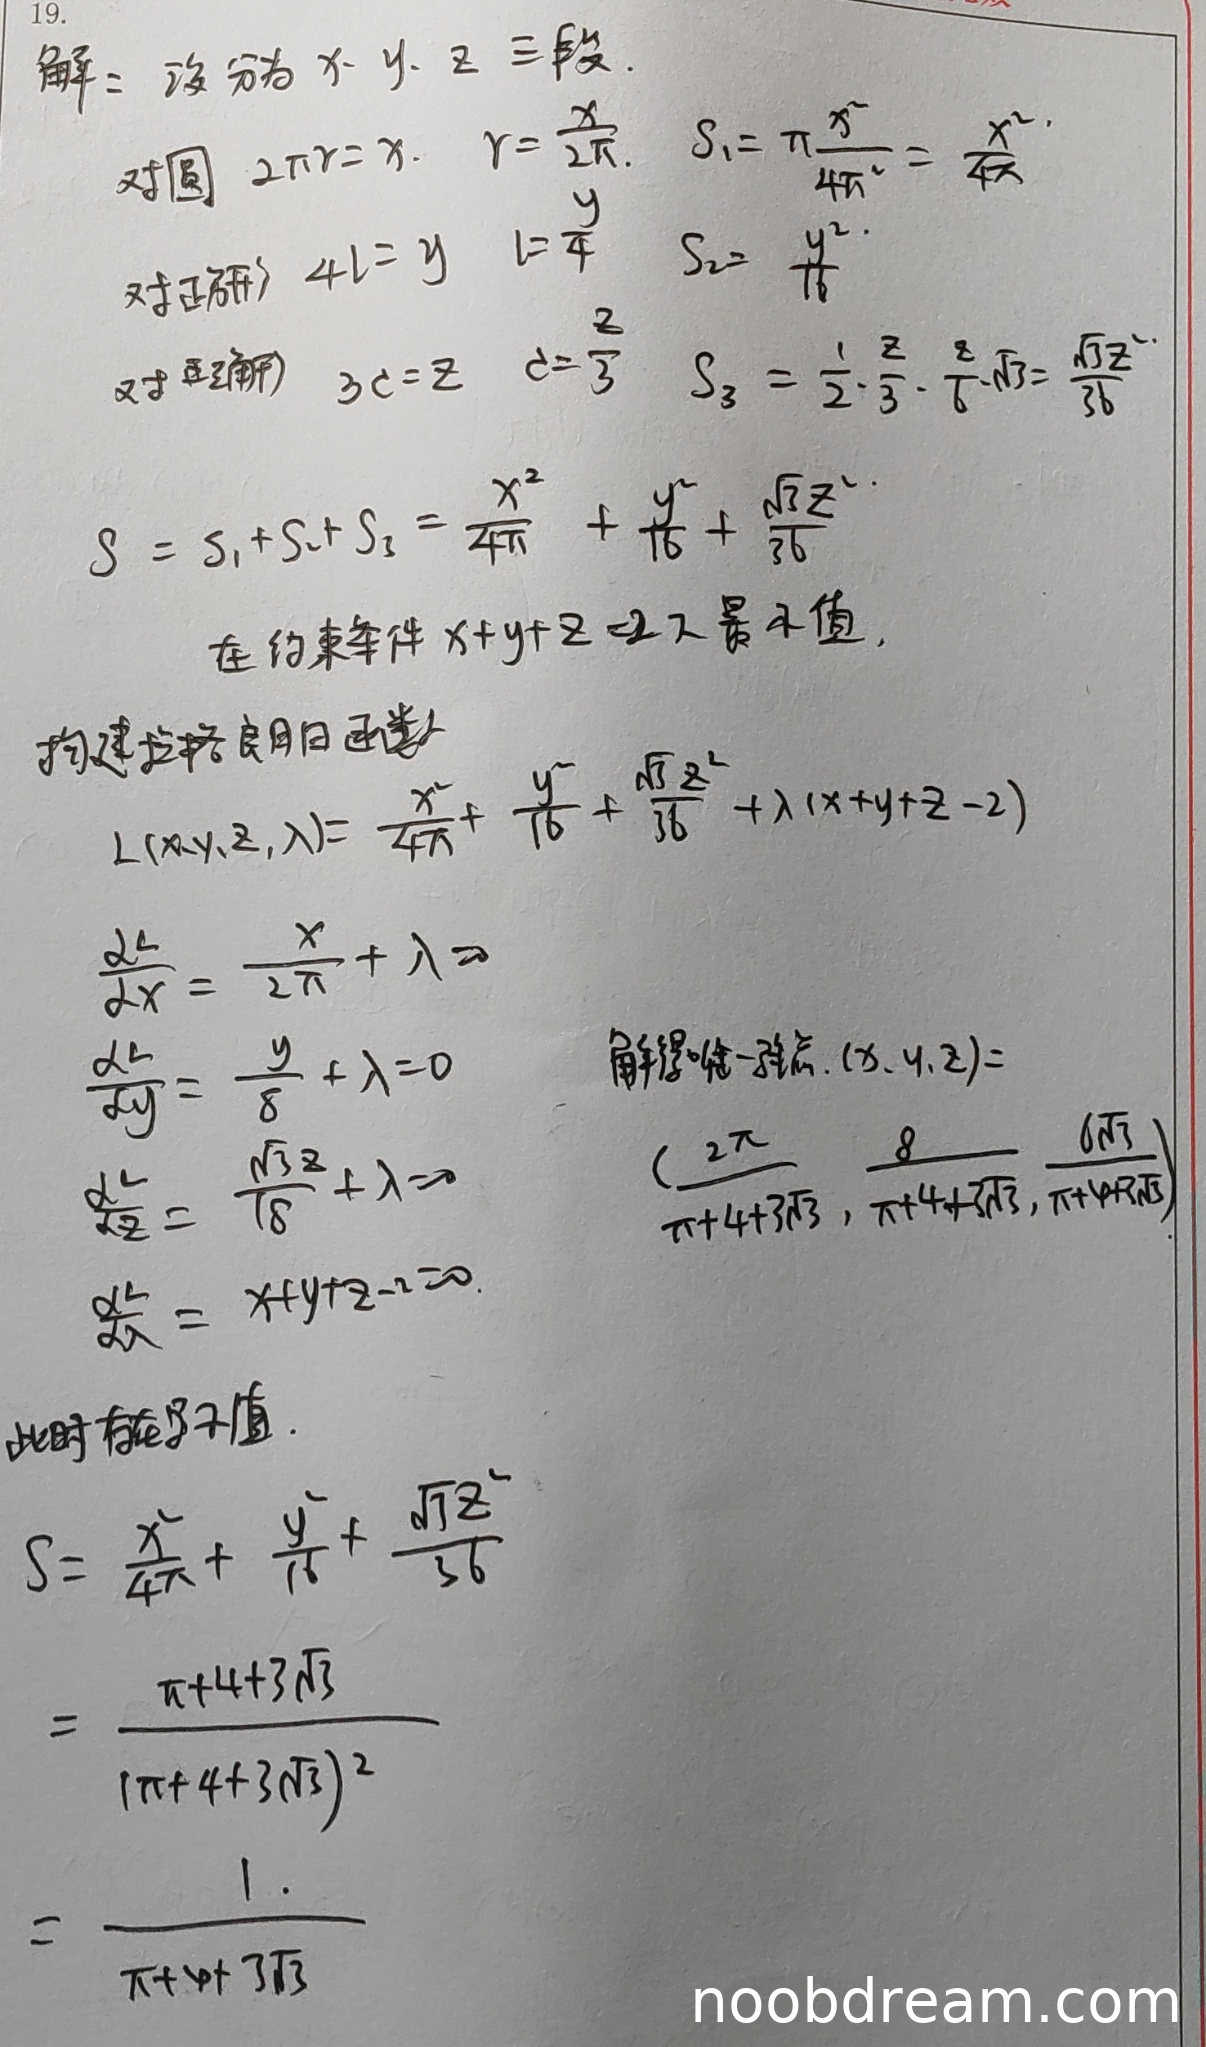 19.
解: 设分为 x、y、z 三段.
对圆 2πr=x. r=x/2π. S₁=π x²/4π² = x²/4π.
对正方形 4l=y l=y/4 S₂= y²/16.
对正三角形 3c=z c=z/3 S₃ = 1/2·z/3·z/6·√3= √3z²/36.
S = S₁+S₂+S₃ = x²/4π + y²/16 + √3z²/36.
在约束条件 x+y+z=2 下最小值.
构建拉格朗日函数
L(x、y、z,λ)= x²/4π + y²/16 + √3z²/36 +λ(x+y+z-2)
∂L/∂x = x/2π + λ=0
∂L/∂y = y/8 + λ=0
解得唯一驻点.(x、y,z)=
∂L/∂z = √3z/18 + λ=0
(2π/π+4+3√3, 8/π+4+3√3, 6√3/π+4+3√3).
∂L/∂λ = x+y+z-2=0.
此时存在最小值.
S= x²/4π + y²/16 + √3z²/36
= π+4+3√3/(π+4+3√3)²
= 1./π+4+3√3
noobdream.com